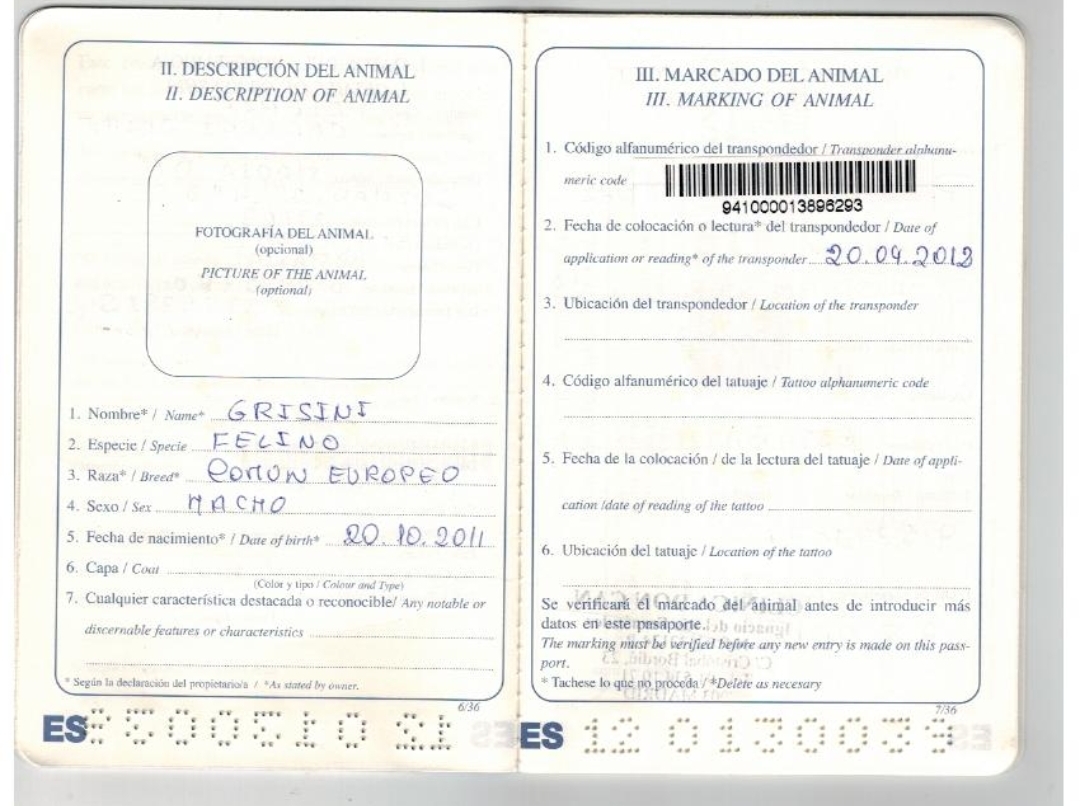 II. DESCRIPCIÓN DEL ANIMAL
II. DESCRIPTION OF ANIMAL
FOTOGRAFÍA DEL ANIMAL
(opcional)
PICTURE OF THE ANIMAL
(optional)
1. Nombre* / Name* GRISINI
2. Especie / Specie FELINO
3. Raza* / Breed* COMUN EUROPEO
4. Sexo / Sex MACHO
5. Fecha de nacimiento* / Date of birth* 20.10.2011
6. Capa / Coat
(Color y tipo / Colour and Type)
7. Cualquier característica destacada o reconocible/ Any notable or
discernable features or characteristics
* Según la declaración del propietario/a / *As stated by owner.
6/36
ES
III. MARCADO DEL ANIMAL
III. MARKING OF ANIMAL
1. Código alfanumérico del transpondedor / Transponder alphanu-
meric code
941000013896293
2. Fecha de colocación o lectura* del transpondedor / Date of
application or reading* of the transponder 20.09.2012
3. Ubicación del transpondedor / Location of the transponder
4. Código alfanumérico del tatuaje / Tattoo alphanumeric code
5. Fecha de la colocación / de la lectura del tatuaje / Date of appli-
cation /date of reading of the tattoo
6. Ubicación del tatuaje / Location of the tattoo
Se verificará el marcado del animal antes de introducir más
datos en este pasaporte.
The marking must be verified before any new entry is made on this pass-
port.
* Tachese lo que no proceda / *Delete as necesary
7/36
ES